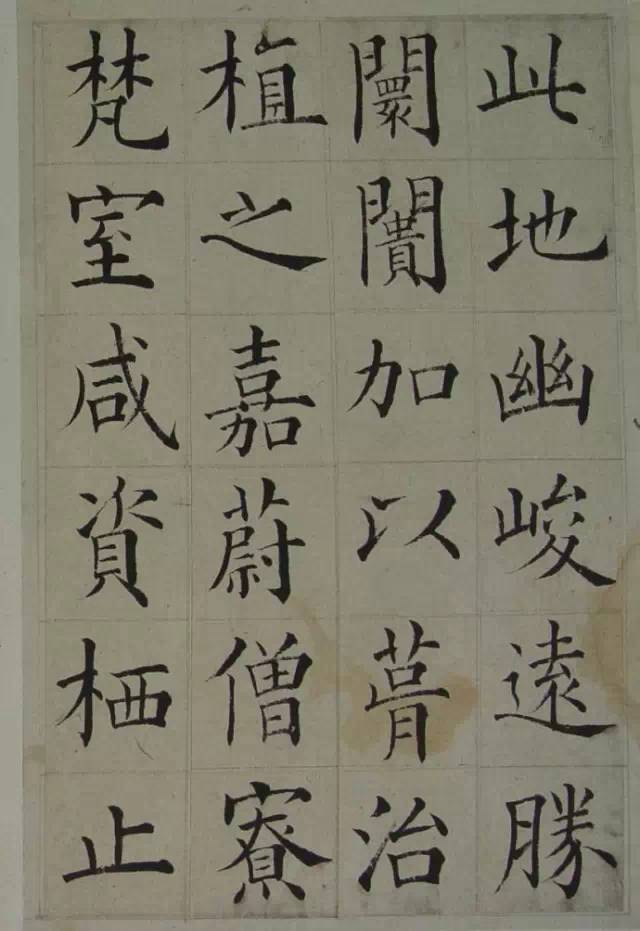 此地幽峻遠勝
闤闠加以葺治
植之嘉蔚僧寮
梵室咸資栖止